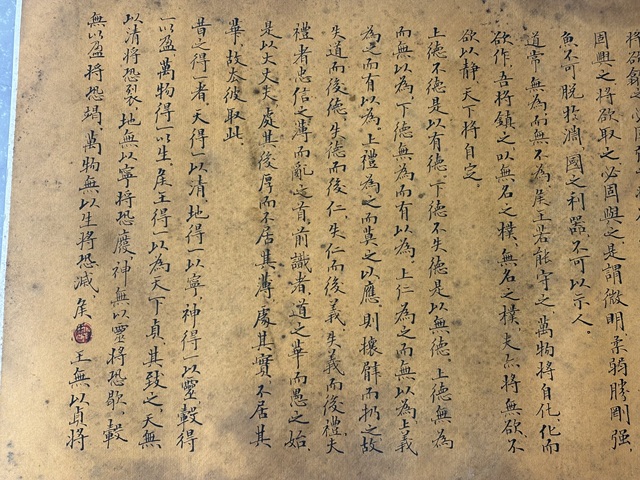 將欲
固與之.將欲取之.必固與之.是謂微明.柔弱勝剛強.
魚不可脫於淵.國之利器.不可以示人.
道常.無為而無不為.侯王若能守之.萬物將自化.化而
欲作.吾將鎮之以無名之樸.無名之樸.夫亦將無欲.不
欲以靜.天下將自定.
上德不德.是以有德.下德不失德.是以無德.上德無為
而無以為.下德無為而有以為.上仁為之而無以為.上義
為之而有以為.上禮為之而莫之以應.則攘臂而扔之.故
失道而後德.失德而後仁.失仁而後義.失義而後禮.夫
禮者.忠信之薄.而亂之首.前識者.道之華.而愚之始.
是以丈丈夫.處其後厚而不居其薄.處其實.不居其
華.故去彼取此.
昔之得一者.天得一以清.地得一以寧.神得一以靈.穀得
一以盈.萬物得一以生.侯王得一以為天下貞.其致之.天無
以清將恐裂.地無以寧將恐廢.神無以靈將恐歇.穀
無以盈將恐竭.萬物無以生將恐滅.侯王無以貞將